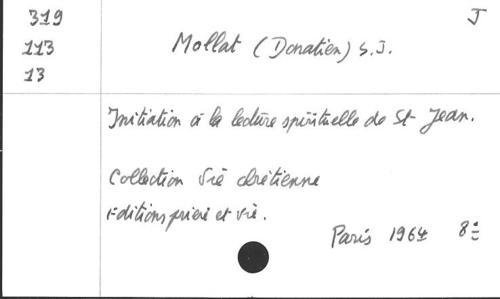 319 J
113 Mollat (Donatien) S.J.
13
Initiation à la lecture spirituelle de St Jean.
Collection Vie chrétienne
Editions prière et vie.
Paris 1964 8º